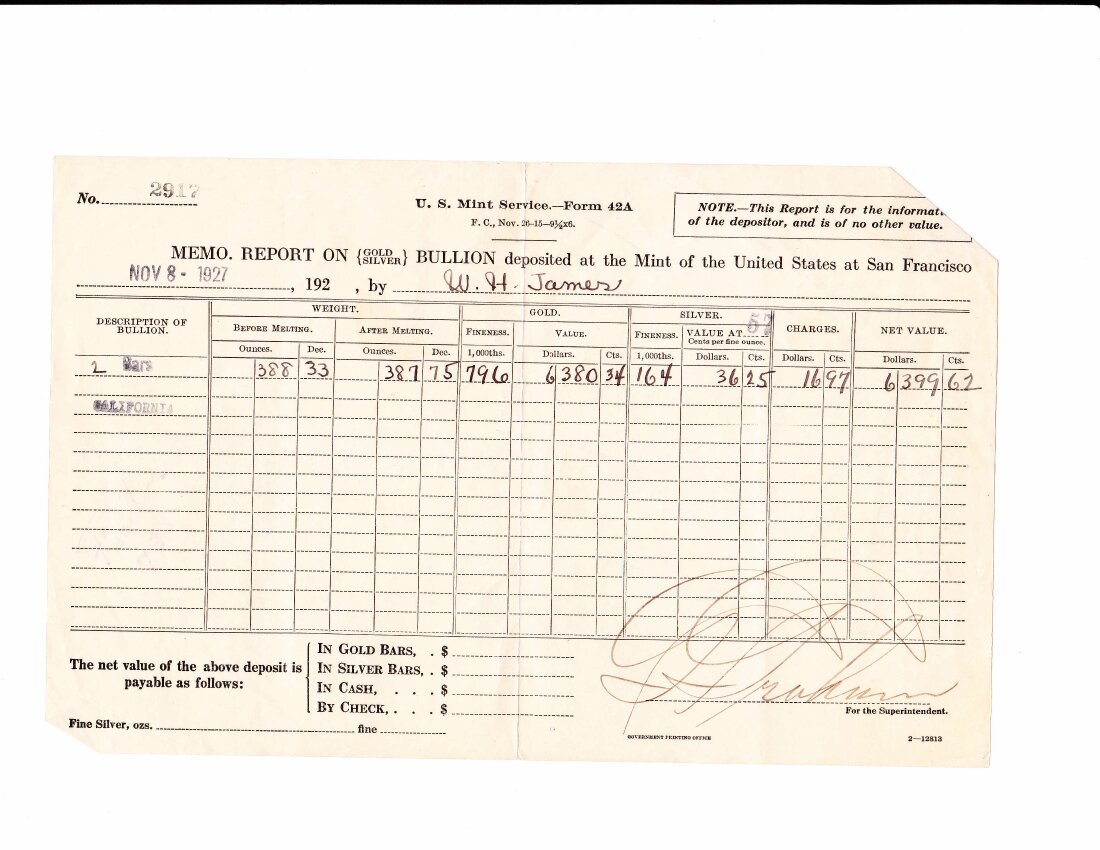 No. 2917
U. S. Mint Service.—Form 42A
F. C., Nov. 26-15—9¼x6.
NOTE.—This Report is for the informat
of the depositor, and is of no other value.
MEMO. REPORT ON {GOLD SILVER} BULLION deposited at the Mint of the United States at San Francisco
NOV 8 - 1927, 192 , by W. H. James
DESCRIPTION OF BULLION. WEIGHT. GOLD. SILVER. CHARGES. NET VALUE.
BEFORE MELTING. AFTER MELTING. FINENESS. VALUE. FINENESS. VALUE AT 57 Cents per fine ounce.
Ounces. Dec. Ounces. Dec. 1,000ths. Dollars. Cts. 1,000ths. Dollars. Cts. Dollars. Cts. Dollars. Cts.
2 Bars 388 33 387 75 796 6 380 34 164 36 25 16 97 6 399 62
CALIFORNIA
The net value of the above deposit is payable as follows:
IN GOLD BARS, . $
IN SILVER BARS, . $
IN CASH, . . . $
BY CHECK, . . . $
For the Superintendent.
Fine Silver, ozs. fine
GOVERNMENT PRINTING OFFICE
2—12813